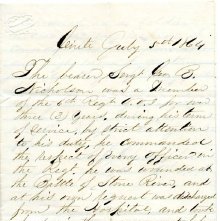 Civite July 5th 1864
The bearer Sergt Geo B.
Nicholson was a Member
of the 6th Regt O.V.I for over
three (3) Years, during his term
of service, by strict attention
to his duty, he commanded
the respect of every officer in
the Regt. he was wounded at
the Battle of Stone River, and
at his own request was discharged
from the Hospital, and by